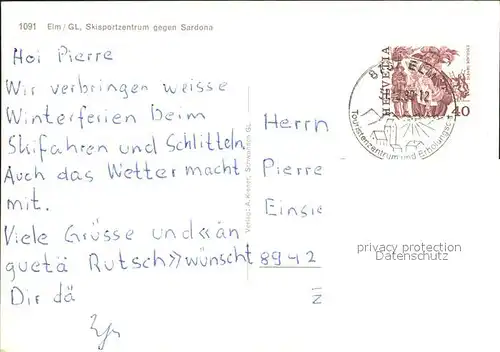 1091 Elm/GL, Skisportzentrum gegen Sardona
Hoi Pierre
Wir verbringen weisse
Winterferien beim
Skifahren und Schlitteln.
Auch das Wetter macht
mit.
Viele Grüsse und «än
guetä Rutsch» wünscht
Dir dä
Verlag: A. Kieser, Schwanden GL
HELVETIA
40
ELM
Touristenzentrum und Erholungsort
Herrn
Pierre
Einsie
8942
privacy protection
Datenschutz